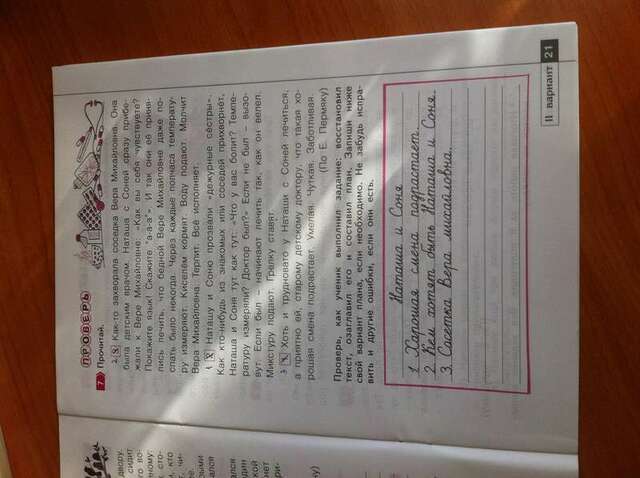 ПРОВЕРЬ
7 Прочитай.
Как-то захворала соседка Вера Михайловна. Она
была детским врачом. Наташа с Соней сразу прибе-
жали к Вере Михайловне: «Как вы себя чувствуете?
Покажите язык! Скажите "а-а-а"». И так они её приня-
лись лечить, что бедной Вере Михайловне даже по-
спать было некогда. Через каждые полчаса температу-
ру измеряют. Киселём кормят. Воду подают. Молчит
Вера Михайловна. Терпит. Всё исполняет.
Наташу и Соню прозвали «дежурные сёстры».
Как кто-нибудь из знакомых или соседей прихворнёт,
Наташа и Соня тут как тут: «Что у вас болит? Темпе-
ратуру измеряли? Доктор был?» Если не был – вызо-
вут. Если был – начинают лечить так, как он велел.
Микстуру подают. Грелку ставят.
Хоть и трудновато у Наташи с Соней лечиться,
а приятно ей, старому детскому доктору, что такая хо-
рошая смена подрастает. Умелая. Чуткая. Заботливая.
(По Е. Пермяку)
Проверь, как ученик выполнил задание: восстановил
текст, озаглавил его и составил план. Запиши ниже
свой вариант плана, если необходимо. Не забудь испра-
вить и другие ошибки, если они есть.
Наташа и Соня
1. Харошая смена падрастает.
2. Кем хотят быть Наташа и Соня.
3. Сасетка Вера михайловна.
II вариант 21